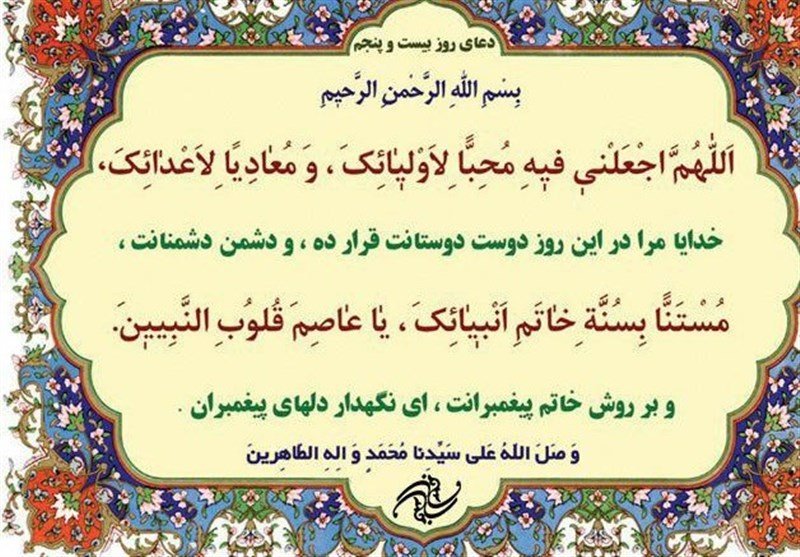 دعای روز بیست و پنجم
بِسْمِ اللّٰهِ الرَّحْمٰنِ الرَّحیٖمِ
اَللّٰهُمَّ اجْعَلْنیٖ فیٖهِ مُحِبًّا لِاَوْلیٰائِکَ ، وَ مُعٰادِیًا لِاَعْدٰائِکَ،
خدایا مرا در این روز دوست دوستانت قرار ده ، و دشمن دشمنانت ،
مُسْتَنًّا بِسُنَّةِ خٰاتَمِ اَنْبیٰائِکَ ، یٰا عٰاصِمَ قُلوُبِ النَّبِییٖنَ.
و بر روش خاتم پیغمبرانت ، ای نگهدار دلهای پیغمبران .
وَ صَلَ اللهُ عَلی سَیِّدِنا مُحَمَدٍ وَ الِهِ الطّاهِرینَ